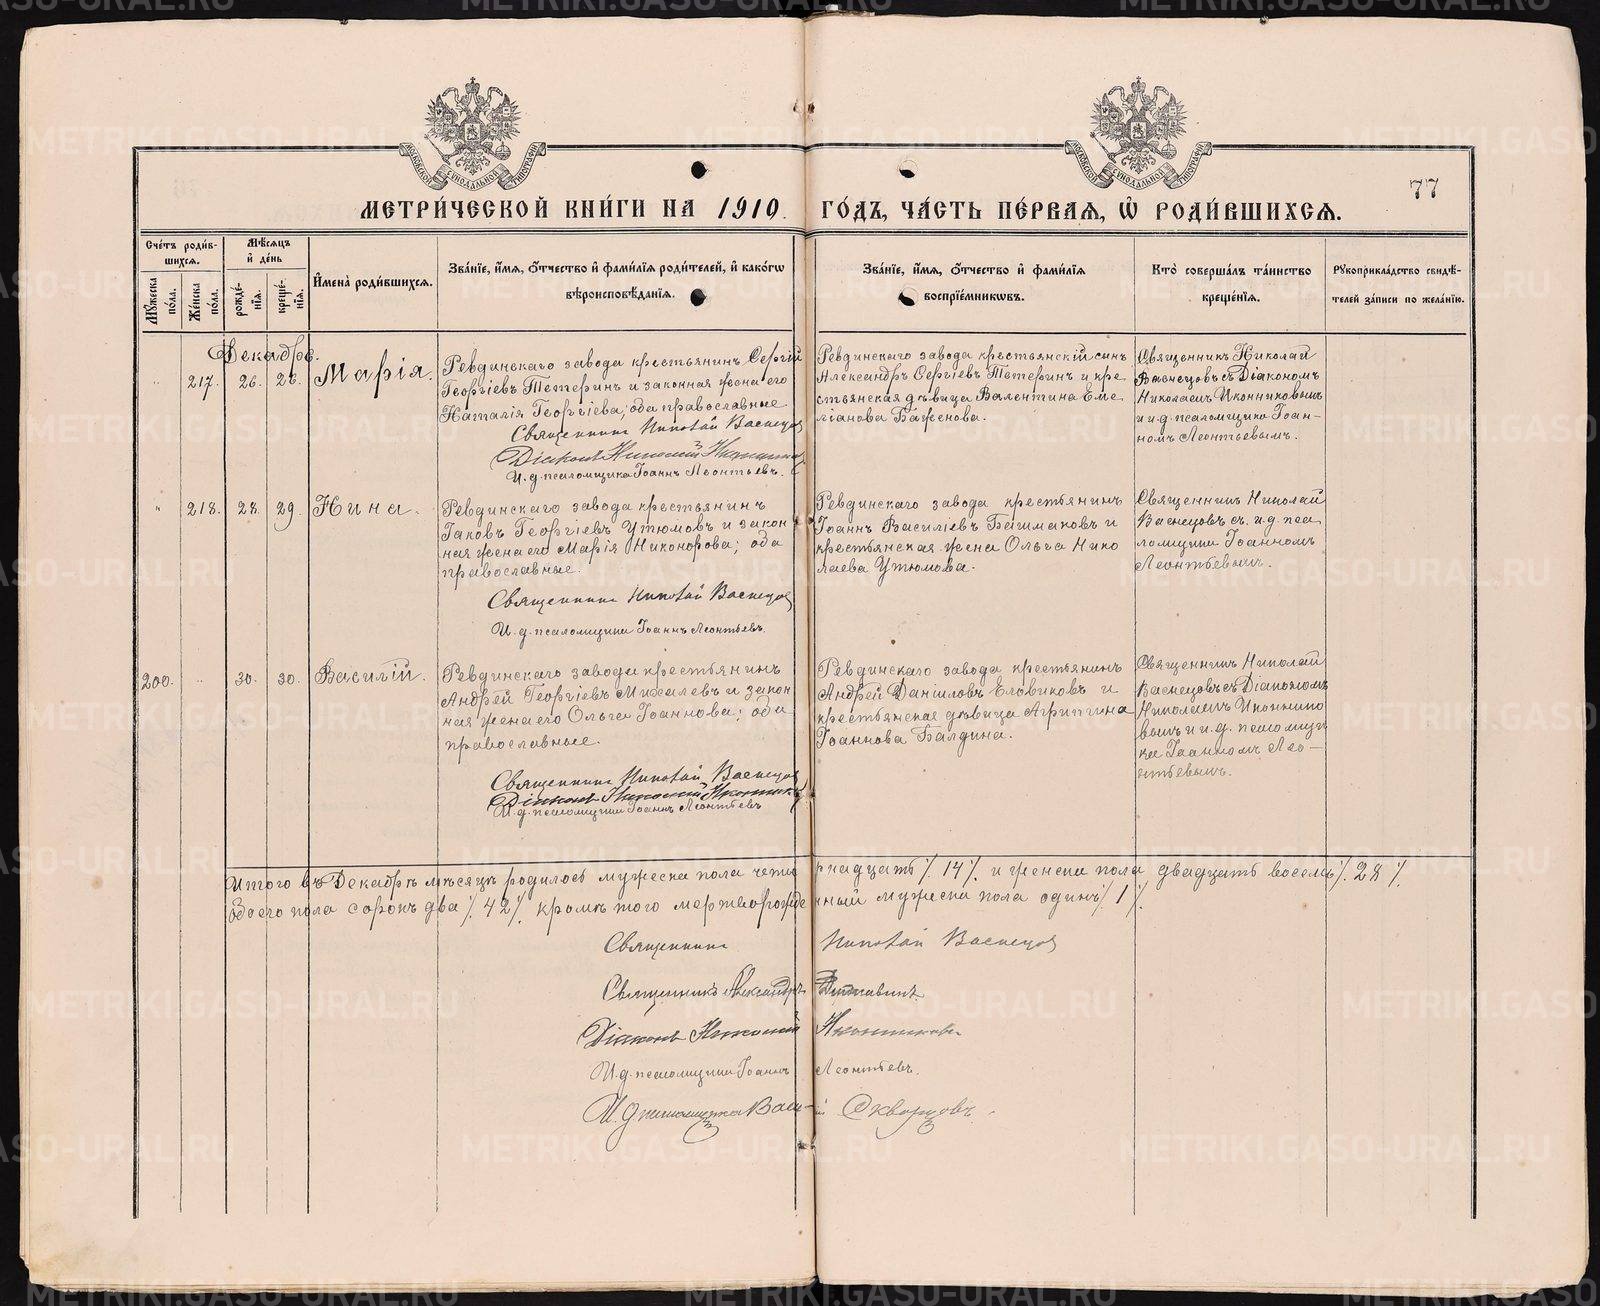 МОСКОВСКОЙ СѴНОДАЛЬНОЙ ТИПОГРАФІИ
МОСКОВСКОЙ СѴНОДАЛЬНОЙ ТИПОГРАФІИ
77
МЕТРИ́ЧЕСКОЙ КНИ́ГИ НА 1919. ГО́ДЪ, ЧА́СТЬ ПЕ́РВАѦ, Ѡ РОДИ́ВШИХСѦ.
Сче́тъ роди́в-
шихсѧ.
Мꙋ́жеска по́ла.
Же́нска по́ла.
Мѣ́сѧцъ
и҆ де́нь
рожде́-
нїѧ.
креще́-
нїѧ.
И҆мена̀ роди́вшихсѧ.
Зва́нїе, и҆́мѧ, о҆́тчество и҆ фами́лїѧ роди́телей, и҆ како́гѡ
вѣроисповѣ́данїѧ.
Зва́нїе, и҆́мѧ, о҆́тчество и҆ фами́лїѧ
воспрїе́мникѡвъ.
Кто̀ соверша́лъ та́инство
креще́нїѧ.
Рꙋкоприкла́дство свидѣ́-
телей за́писи по жела́нїю.
Декабрь.
" 217. 26. 28. Марія.
Ревдинскаго завода крестьянинъ Сергій
Георгіевъ Тетеринъ и законная жена его
Наталія Георгіева; оба православные
Священникъ Николай Васнецов
Діаконъ Николай Иконников
И.д. псаломщика Іоаннъ Леонтьевъ.
Ревдинскаго завода крестьянскій сынъ
Александръ Сергіевъ Тетеринъ и кре
стьянская дѣвица Валентина Еме
ліанова Баженова.
Священникъ Николай
Васнецовъ съ Діакономъ
Николаемъ Иконниковымъ
и и.д. псаломщика Іоан-
номъ Леонтьевымъ.
" 218. 28. 29. Нина.
Ревдинскаго завода крестьянинъ
Іаковъ Георгіевъ Утюмовъ и закон
ная жена его Марія Никонорова; оба
православные.
Священникъ Николай Васнецов
И.д. псаломщика Іоаннъ Леонтьевъ.
Ревдинскаго завода крестьянинъ
Іоаннъ Василіевъ Башмаковъ и
крестьянская жена Ольга Нико
лаева Утюмова.
Священникъ Николай
Васнецовъ съ и.д. пса
ломщика Іоанномъ
Леонтьевымъ.
200. " 30. 30. Василій.
Ревдинскаго завода крестьянинъ
Андрей Георгіевъ Михалевъ и закон
ная жена его Ольга Іоаннова; оба
православные.
Священникъ Николай Васнецов
Діаконъ Николай Иконников
И.д. псаломщика Іоаннъ Леонтьевъ
Ревдинскаго завода крестьянинъ
Андрей Даніиловъ Еловиковъ и
крестьянская дѣвица Агриппина
Іоаннова Балдина.
Священникъ Николай
Васнецовъ съ Діакономъ
Николаемъ Иконнико
вымъ и и.д. псаломщи
ка Іоанномъ Лео-
нтьевымъ.
Итого въ Декабрѣ мѣсяцѣ родилось мужеска пола четырнадцать /. 14 /. и женска пола двадцать восемь /. 28 /.
Обоего пола сорокъ два /. 42 /. кромѣ того мертворожденный мужска пола одинъ /. 1 /.
Священникъ Николай Васнецов
Священникъ Александръ
Діаконъ Николай Иконников
И.д. псаломщика Іоаннъ Леонтьевъ.
И.д псаломщика Василій Скворцовъ.
METRIKI.GASO-URAL.RU